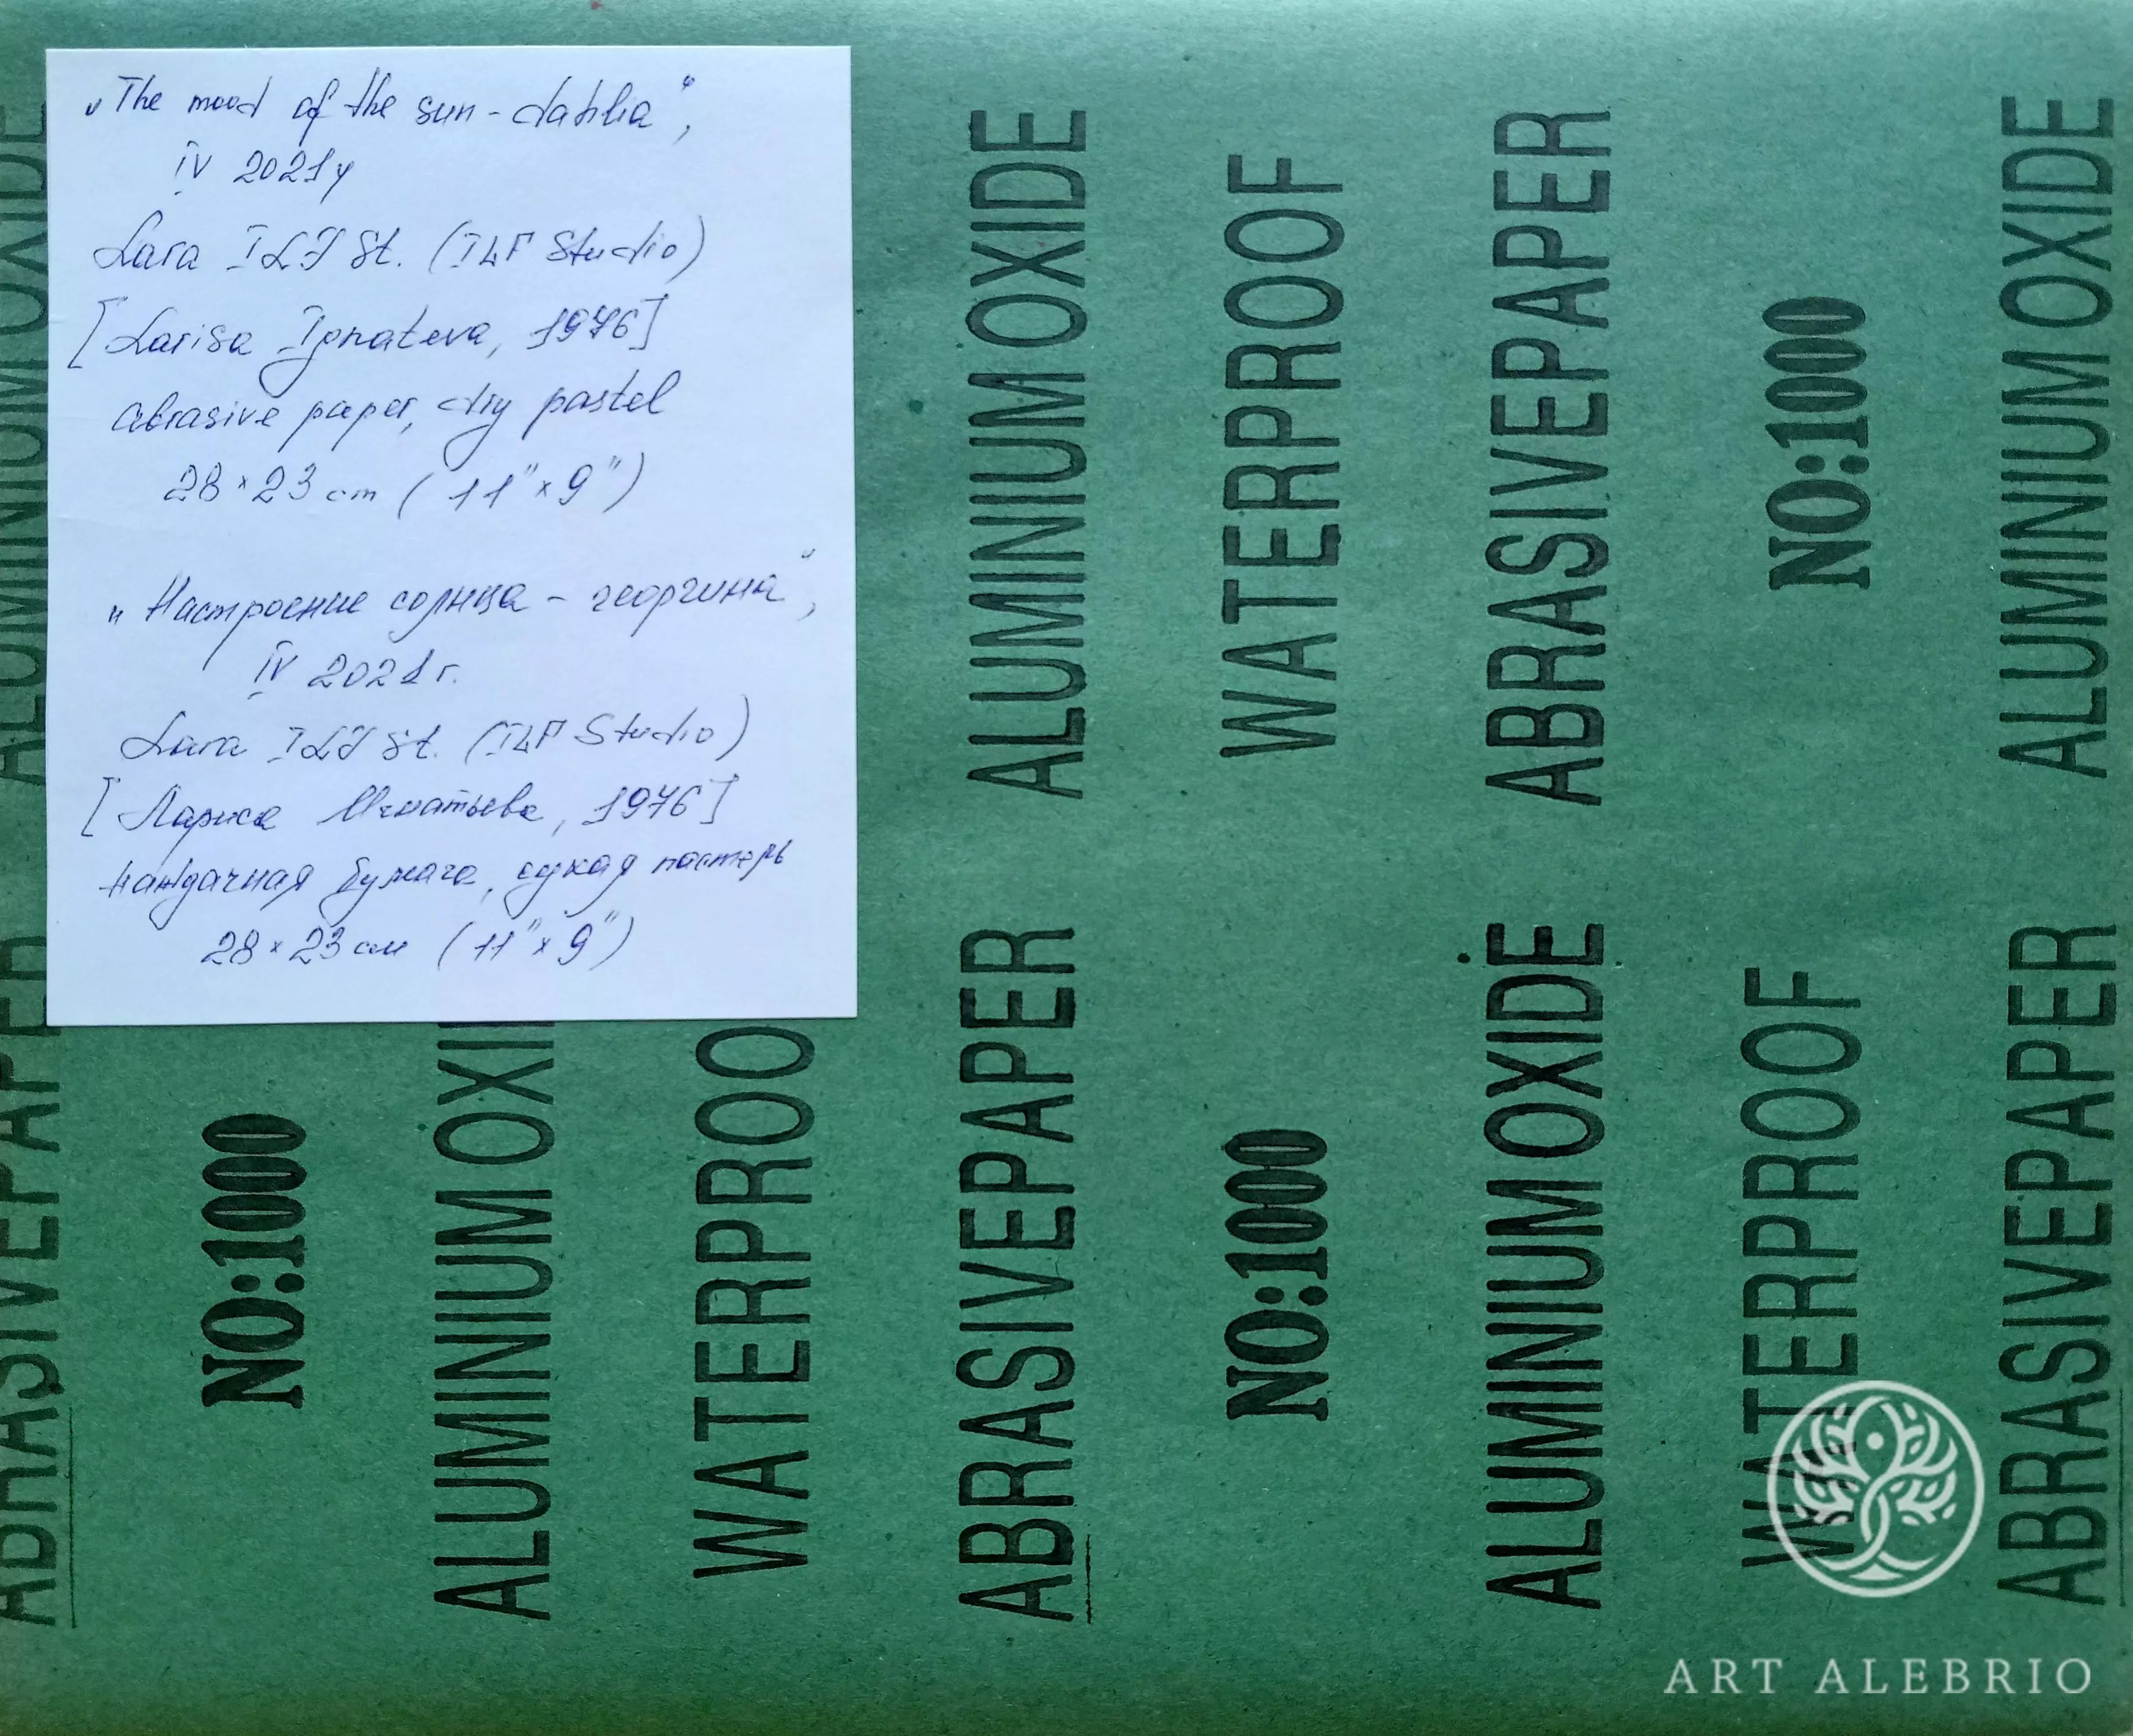 „The mood of the sun - dahlia“,
IV 2021y
Lara ILF St. (ILF Studio)
[Larisa Ignateva, 1976]
abrasive paper, dry pastel
28 × 23 cm (11" × 9")
„Настроение солнца - георгина“,
IV 2021 г.
Lara ILF St. (ILF Studio)
[Лариса Игнатьева, 1976]
наждачная бумага, сухая пастель
28 × 23 см (11" × 9")
ALUMINIUM OXIDE
ABRASIVEPAPER
NO:1000
ALUMINIUM OXI
WATERPROO
ALUMINIUM OXIDE
ABRASIVEPAPER
WATERPROOF
NO:1000
ABRASIVEPAPER
ALUMINIUM OXIDE
NO:1000
WATERPROOF
ALUMINIUM OXIDE
ABRASIVEPAPER
ART ALEBRIO